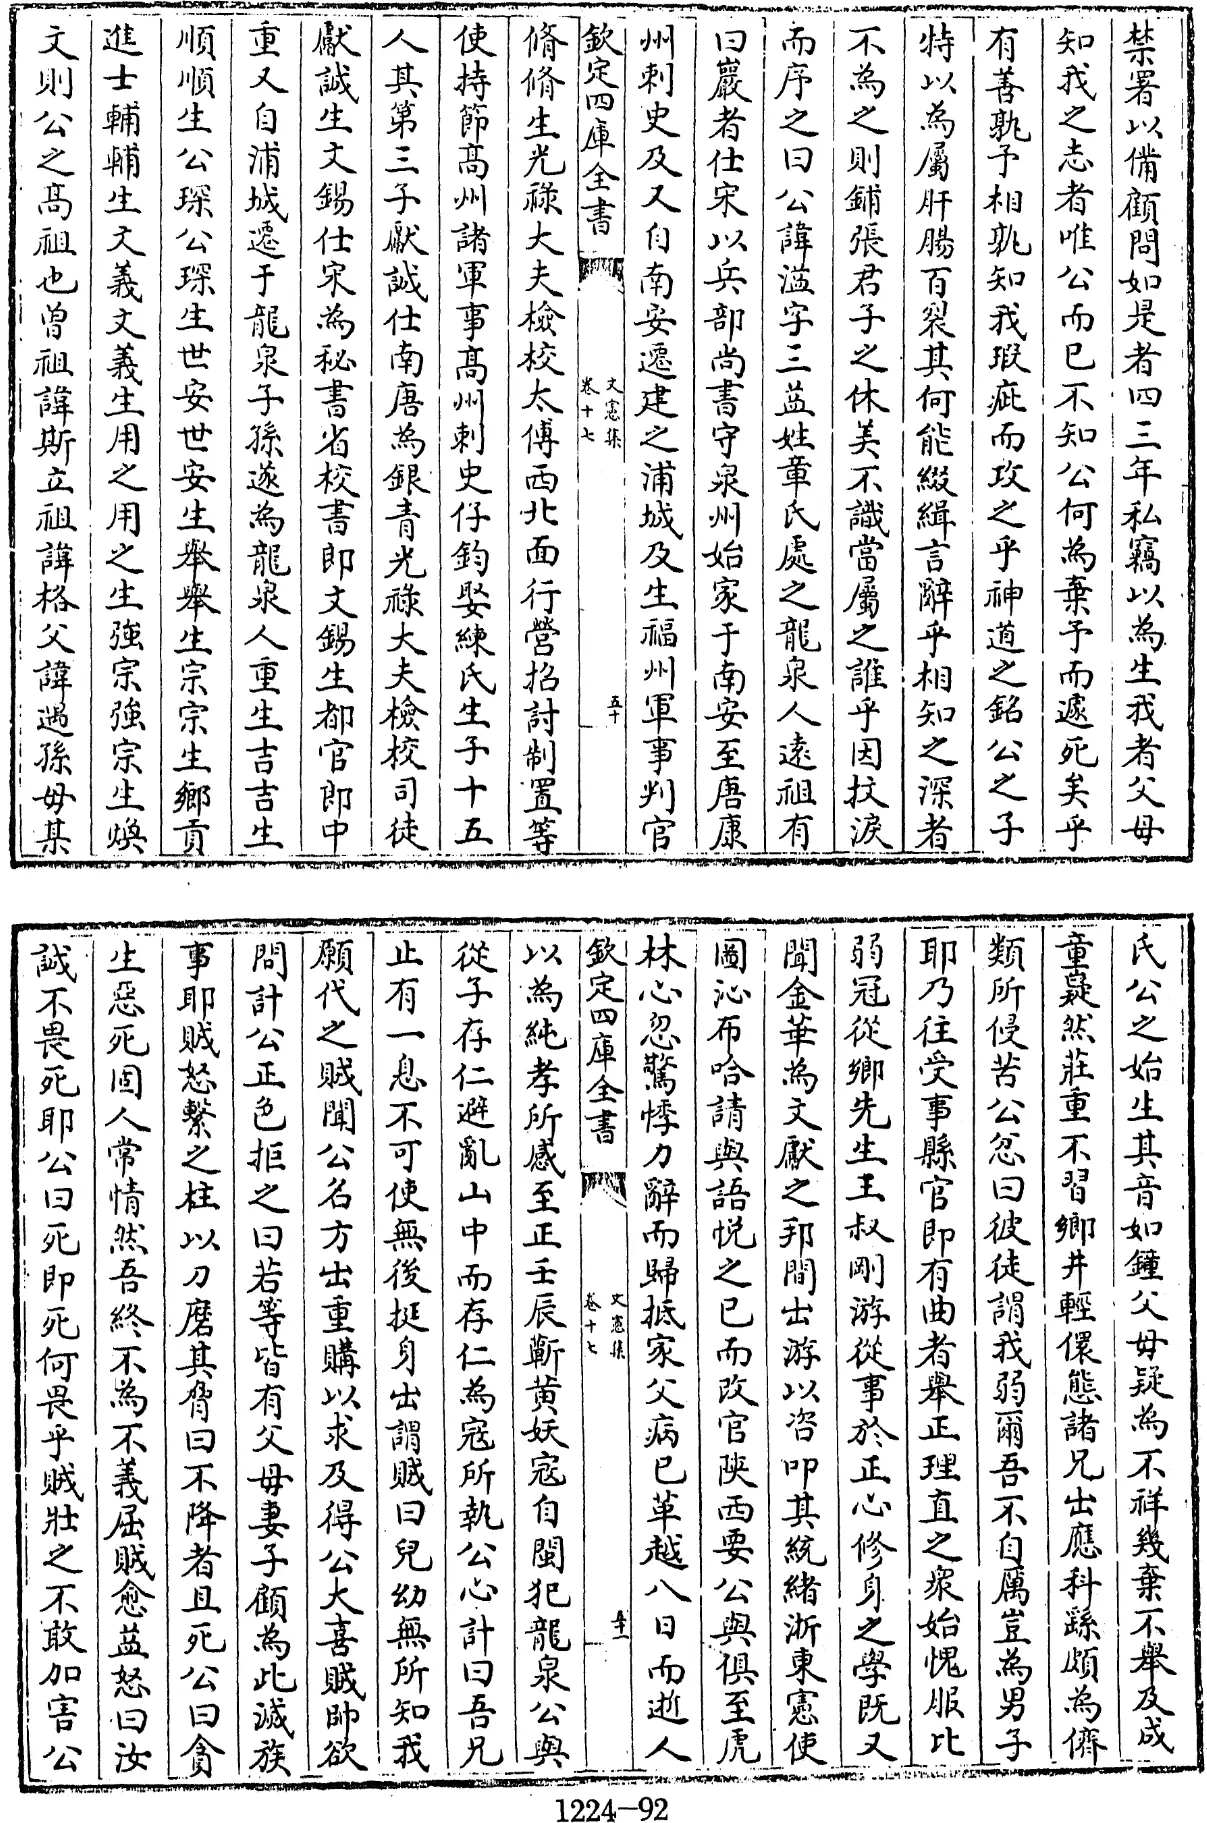 禁署以備顧問如是者四三年私竊以為生我者父母
知我之志者唯公而已不知公何為棄予而遽死矣乎
有善孰予相孰知我瑕疵而攻之乎神道之銘公之子
特以為屬肝腸百裂其何能綴緝言辭乎相知之深者
不為之則鋪張君子之休美不識當屬之誰乎因抆淚
而序之曰公諱溢字三益姓章氏處之龍泉人遠祖有
曰巖者仕宋以兵部尚書守泉州始家于南安至唐康
州刺史及又自南安遷建之浦城及生福州軍事判官
欽定四庫全書
文憲集
卷十七
五十
脩脩生光祿大夫檢校太傅西北面行營招討制置等
使持節高州諸軍事高州刺史仔鈞娶練氏生子十五
人其第三子獻誠仕南唐為銀青光祿大夫檢校司徒
獻誠生文錫仕宋為秘書省校書郎文錫生都官郎中
重又自浦城遷于龍泉子孫遂為龍泉人重生吉吉生
順順生公琛公琛生世安世安生舉舉生宗宗生鄉貢
進士輔輔生文義文義生用之用之生強宗強宗生煥
文則公之高祖也曾祖諱斯立祖諱格父諱遇孫毋某
氏公之始生其音如鐘父母疑為不祥幾棄不舉及成
童嶷然莊重不習鄉井輕儇態諸兄出應科繇頗為儕
類所侵苦公忿曰彼徒謂我弱爾吾不自厲豈為男子
耶乃往受事縣官即有曲者舉正理直之衆始愧服比
弱冠從鄉先生王叔剛游從事於正心修身之學既又
聞金華為文獻之邦間出游以咨叩其統緒浙東憲使
圖沁布哈請與語悅之已而改官陜西要公與俱至虎
林心忽驚悸力辭而歸抵家父病已革越八日而逝人
欽定四庫全書
文憲集
卷十七
五十一
以為純孝所感至正壬辰蘄黄妖寇自閩犯龍泉公與
從子存仁避亂山中而存仁為寇所執公心計曰吾兄
止有一息不可使無後挺身出謂賊曰兒幼無所知我
願代之賊聞公名方出重購以求及得公大喜賊帥欲
問計公正色拒之曰若等皆有父母妻子顧為此滅族
事耶賊怒繫之柱以刀磨其脅曰不降者且死公曰貪
生惡死固人常情然吾終不為不義屈賊愈益怒曰汝
誠不畏死耶公曰死即死何畏乎賊壯之不敢加害公
1224-92